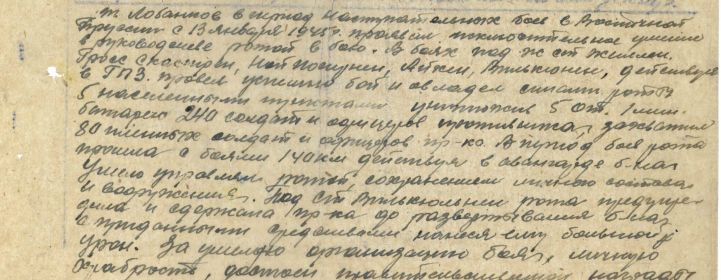 т. Лобанков в период наступательных боев в Восточной
Пруссии с 13 января 1945 г. проявил исключительное умение
в руководстве ротой в бою. В боях под ж.ст.
Гросс Скайсгирен, действуя
в ГПЗ. провел успешно бой и овладел силами роты
5 населенными пунктами уничтожив 5 от. 1 мин.
батареи 240 солдат и офицеров противника, захватил
80 пленных солдат и офицеров пр-ка. В период боев рота
прошла с боями 140 км действуя в авангарде б-на
Умело управлял ротой, сохранением личного состава
и вооружения. Под ст. рота предупре-
дила и сдержала пр-ка до развертывания б-на
с приданными средствами нанеся ему большой
урон. За умелую организацию боя, личную
храбрость, достоин правительственной награды